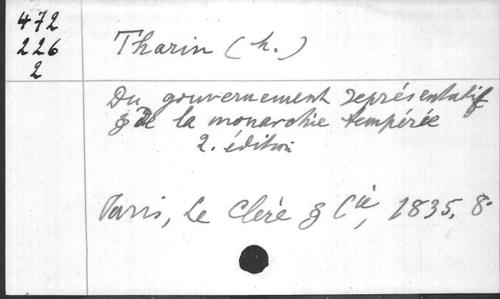 472
226
2
Tharin (h.)
Du gouvernement représentatif
& de la monarchie tempérée
2. édition
Paris, Le Clère & Cie, 1835. 8°